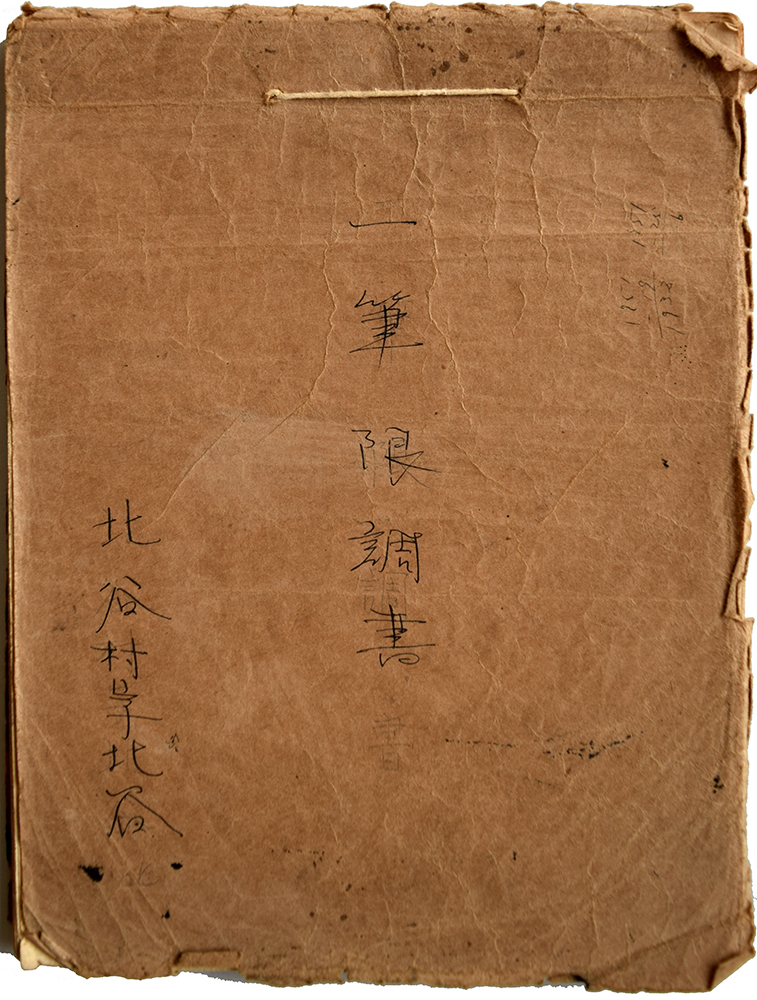 一筆限調書
北谷村字北谷